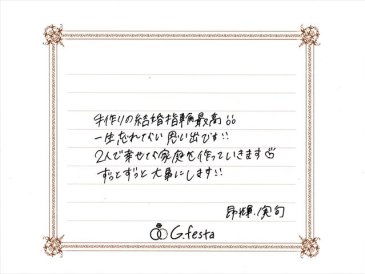 手作りの結婚指輪最高!!
一生忘れない思い出です!!
2人で幸せな家庭を作っていきます
ずっとずっと大事にします!!
G.festa